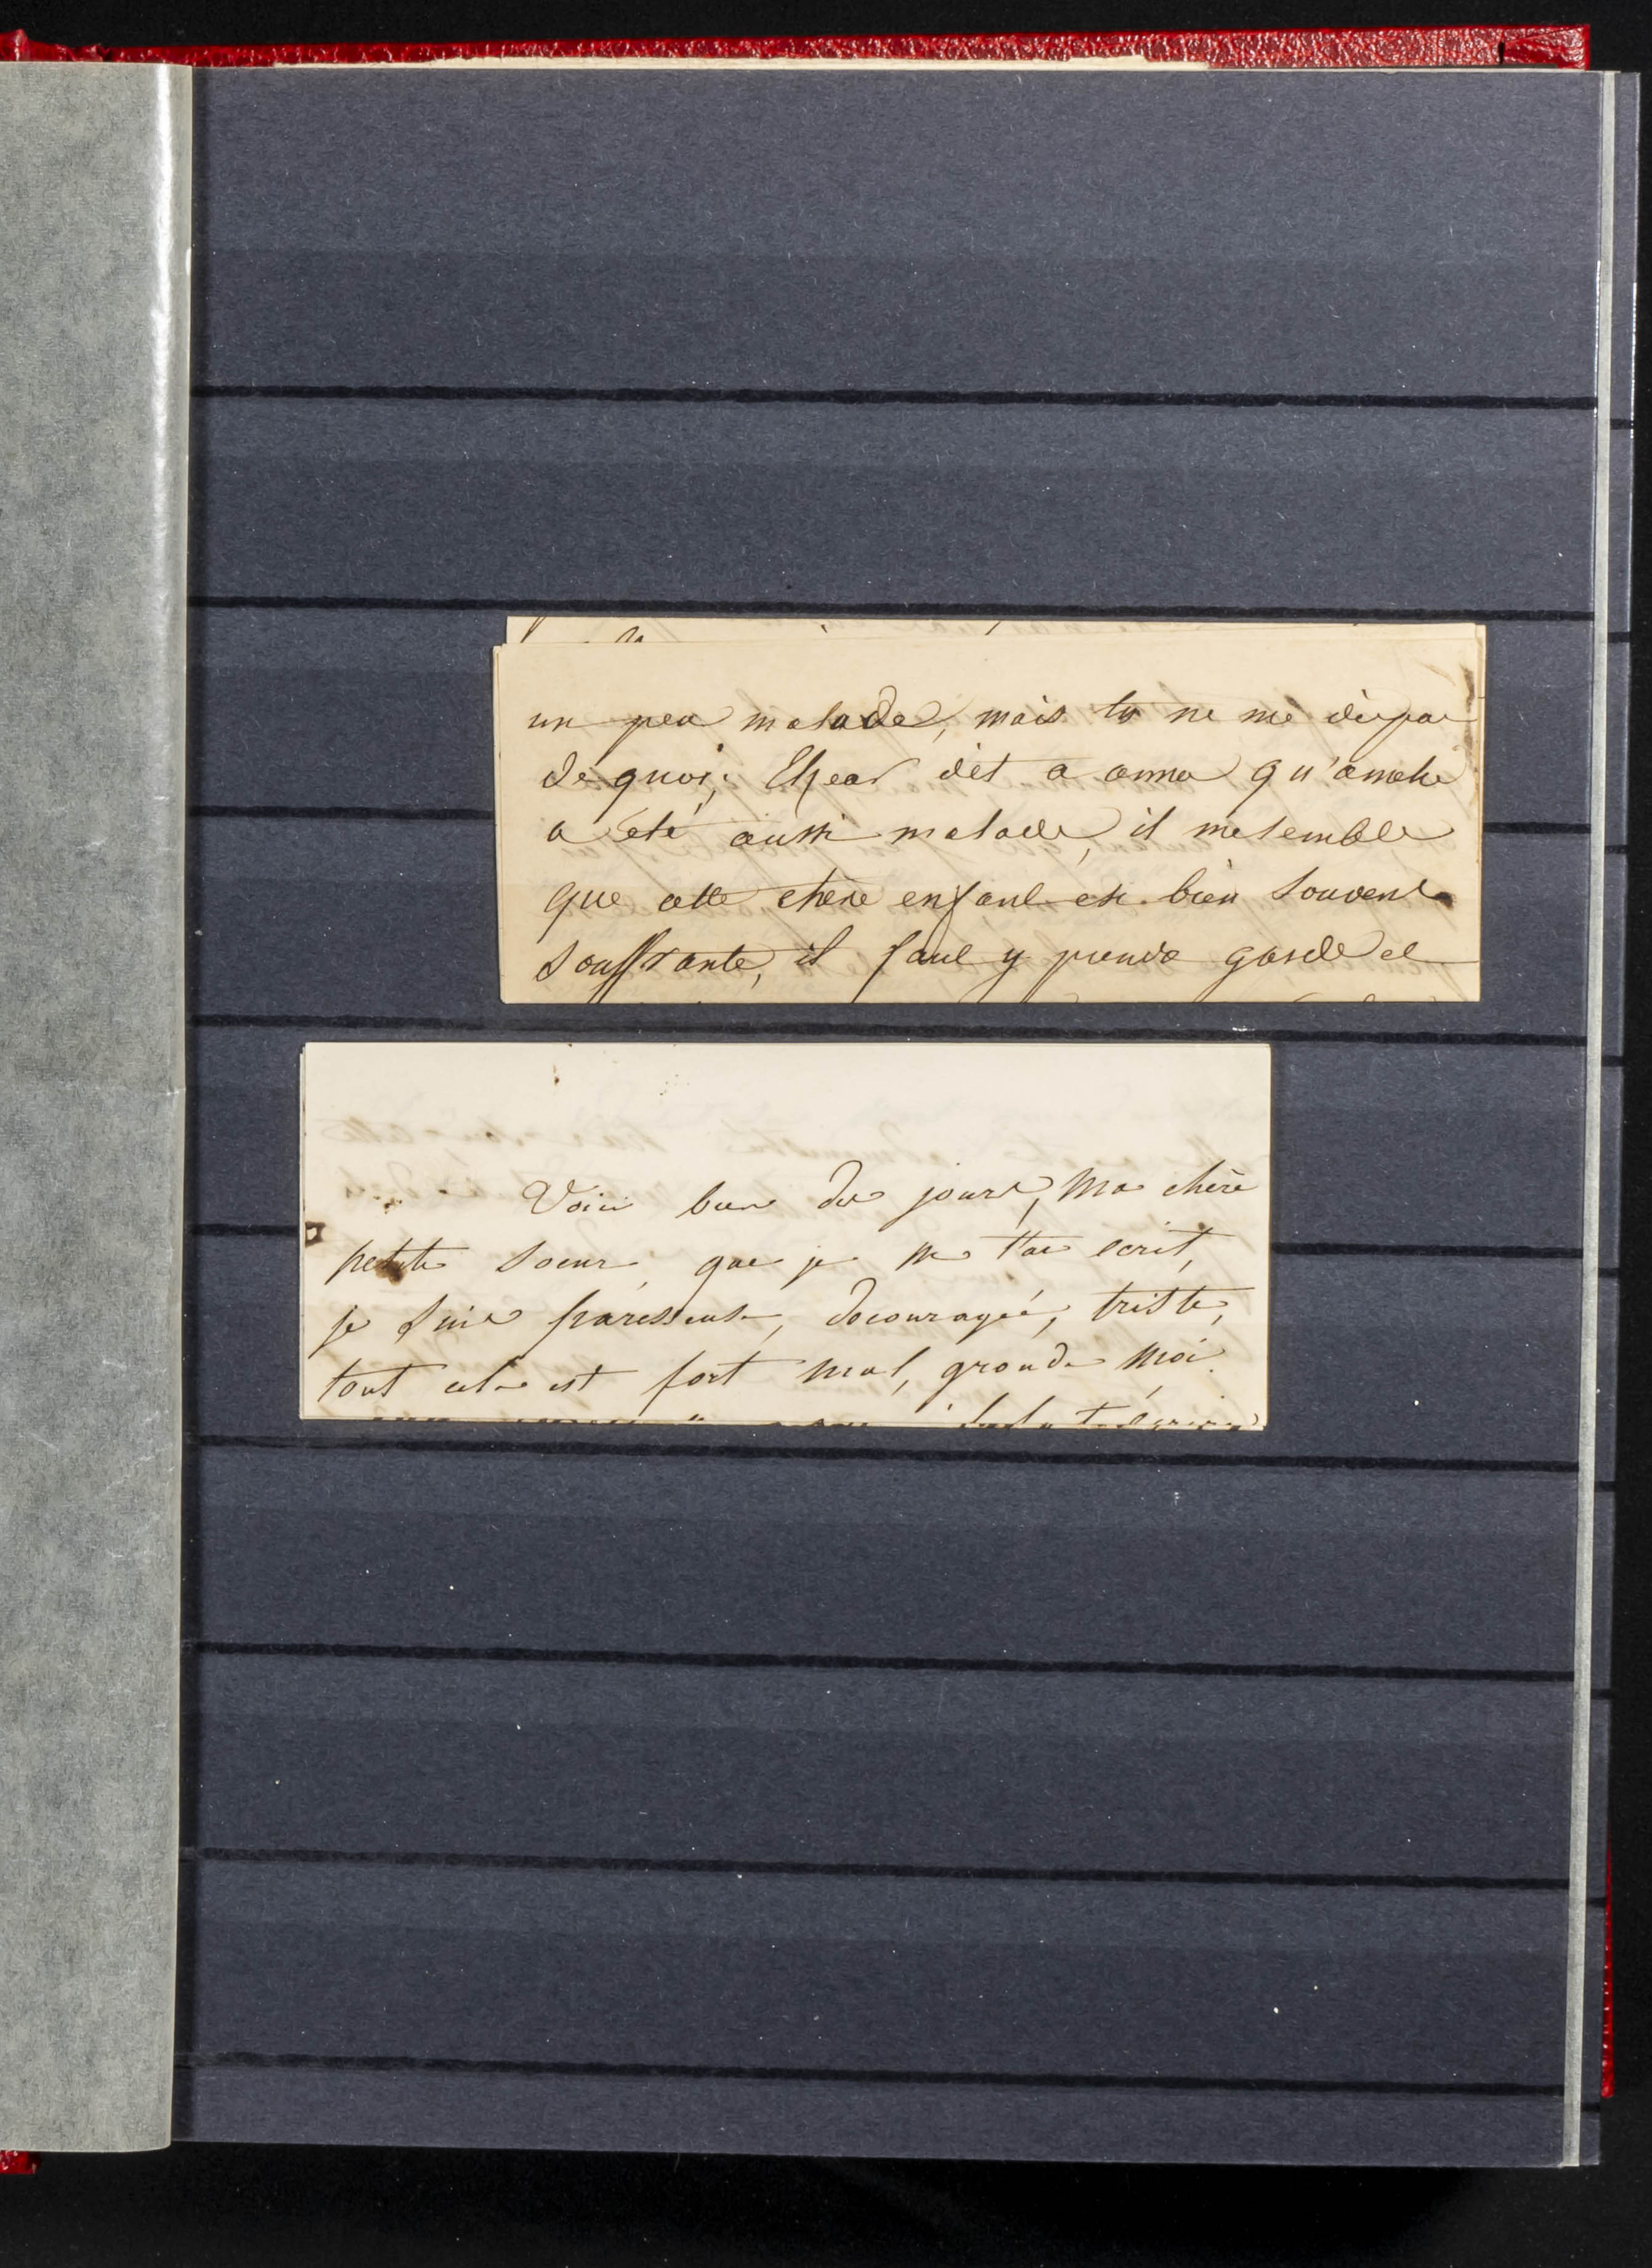 un peu malade, mais tu ne me dis pas
de quoi; Elzear dit a anna qu'amelie
a été aussi malade, il me semble
que cette chère enfant est bien souvent
souffrante, il faut y prendre garde et
Voici bien des jours, ma chère
petite soeur, que je ne t'ai ecrit,
je suis paresseuse, decouragée, triste,
tout cela est fort mal, gronde moi